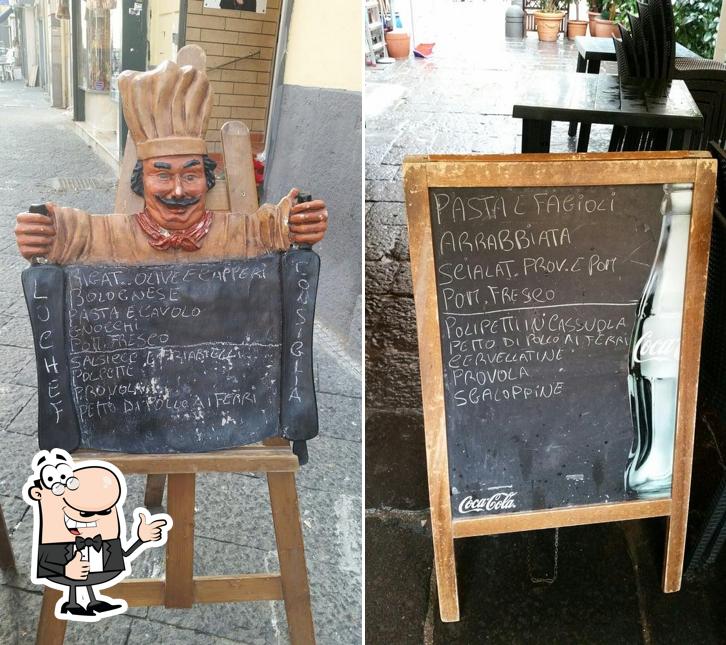 LUCHEY
CONSIGLIA
RIGAT... OLIVE E CAPPERI
BOLOGNESE
PASTA E CAVOLO
GNOCCHI
POM. FRESCO
SALSICCE E FRIARIELLI
POLPETTE
PROVOLA
PETTO DI POLLO AI FERRI
PASTA E FAGIOLI
ARRABBIATA
SCIALAT. PROV. E POM.
POM. FRESCO
POLIPETTI IN CASSUOLA
PETTO DI POLLO AI FERRI
CERVELLATINE
PROVOLA
SCALOPPINE
Coca
Coca-Cola